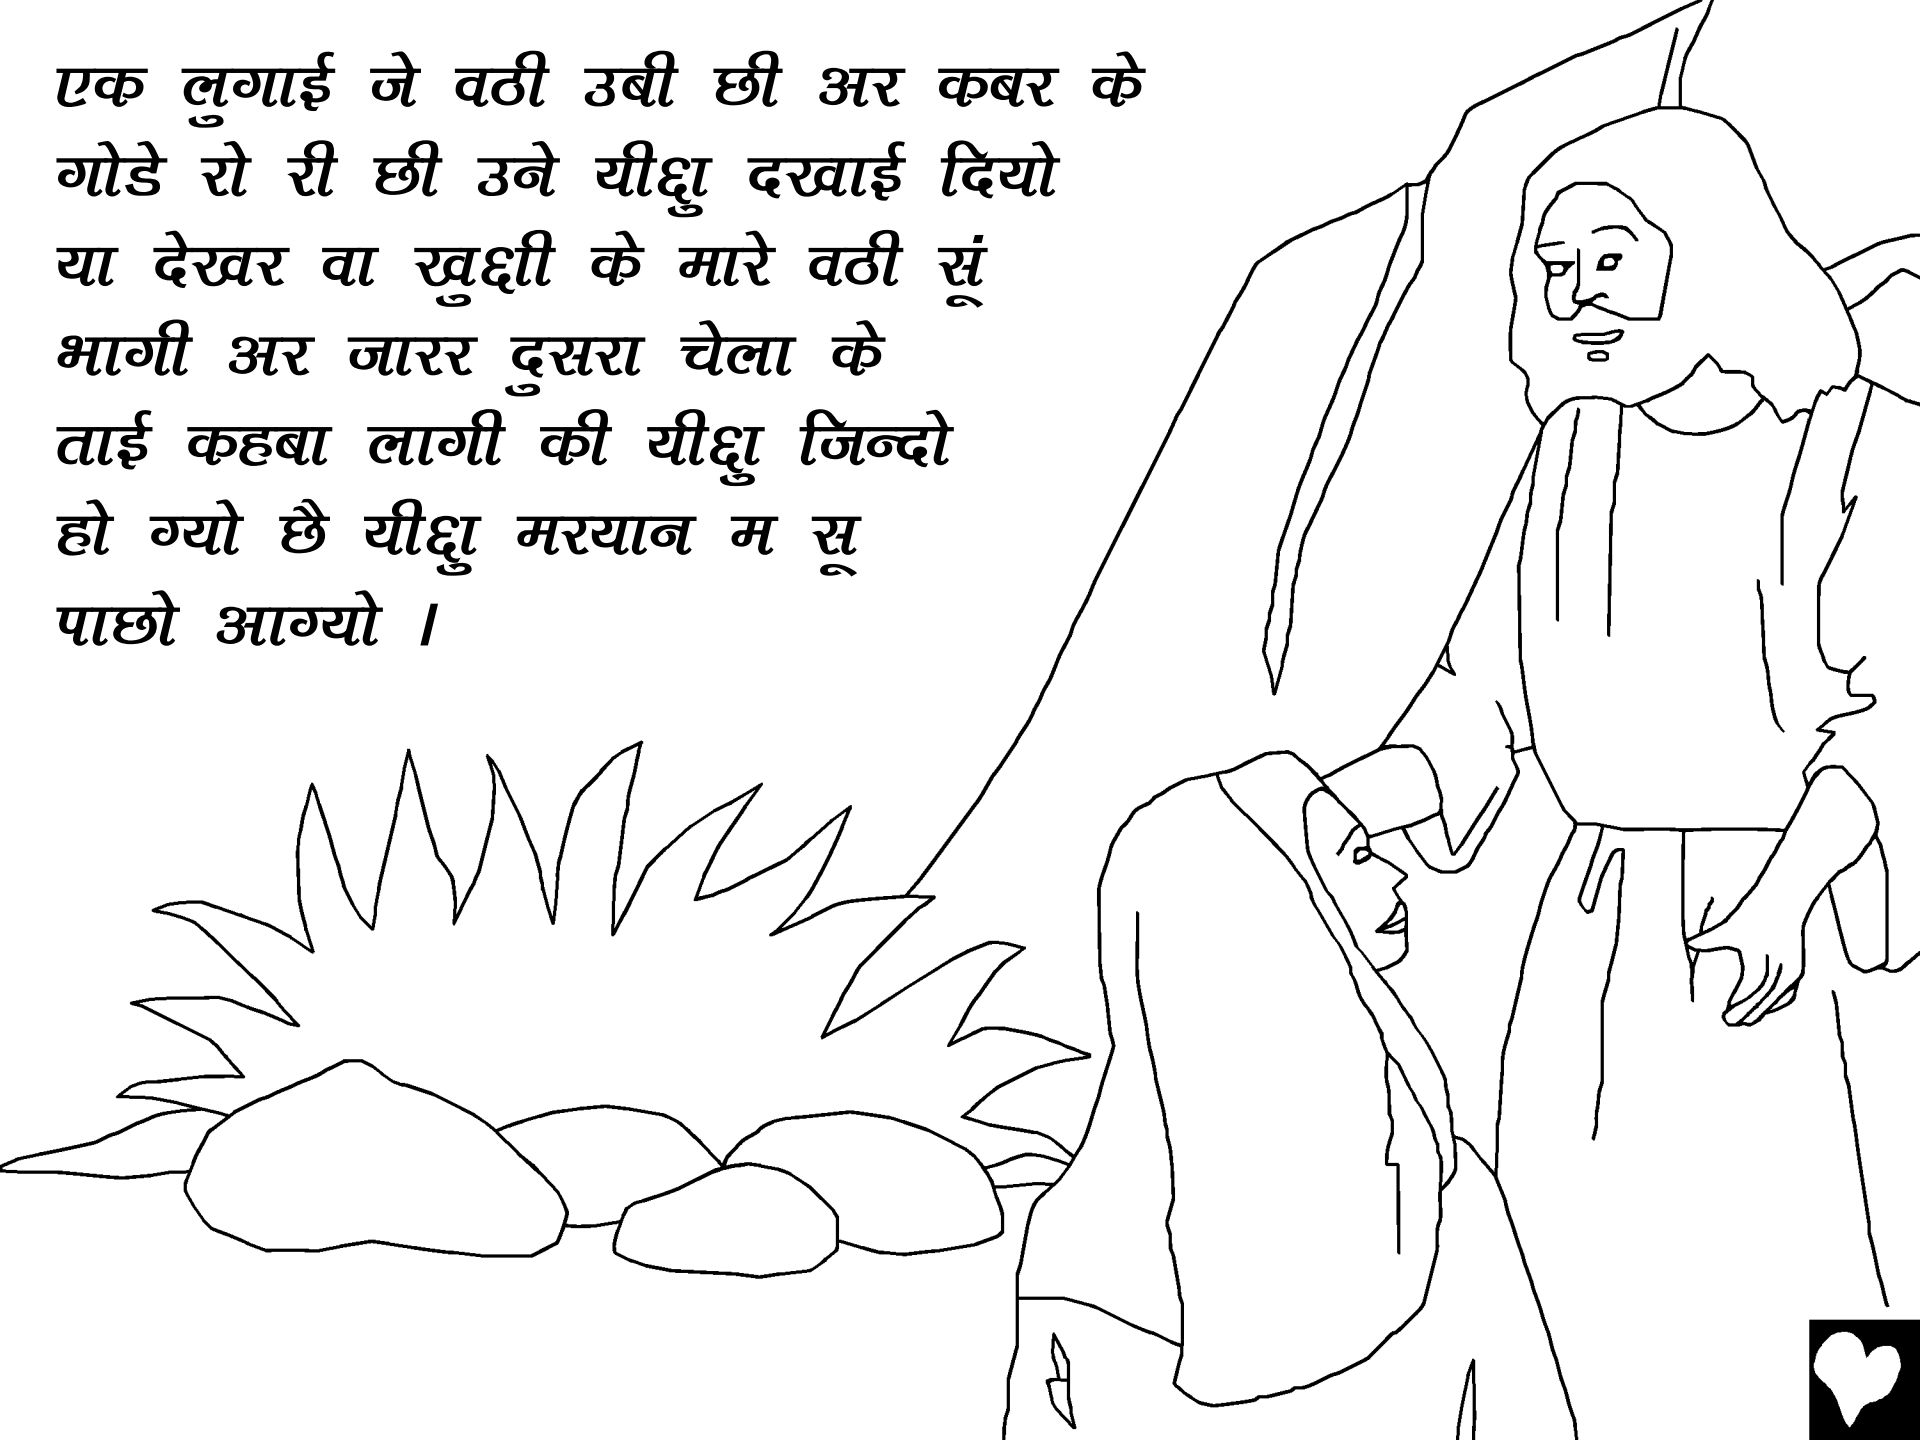 एक लुगाई जे वठी उबी छी अर कबर के
गोडे रो री छी उने यीशु दखाई दियो
या देखर वा खुशी के मारे वठी सूं
भागी अर जारर दुसरा चेला के
ताई कहबा लागी की यीशु जिन्दो
हो ग्यो छै यीशु मरयान म सू
पाछो आग्यो ।